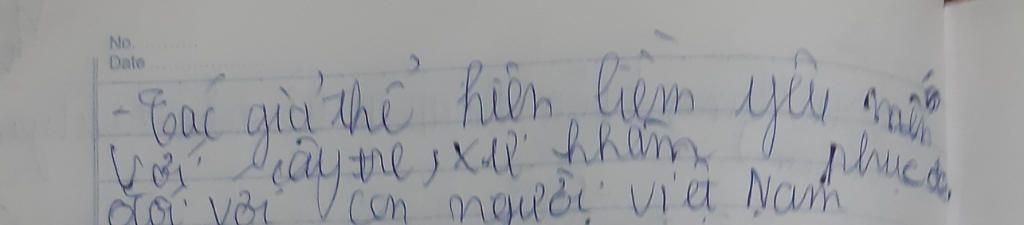 No.
Date
- Tác giả thể hiện liềm yêu mến
với cây tre, xự khâm phục
đối với con người việt Nam